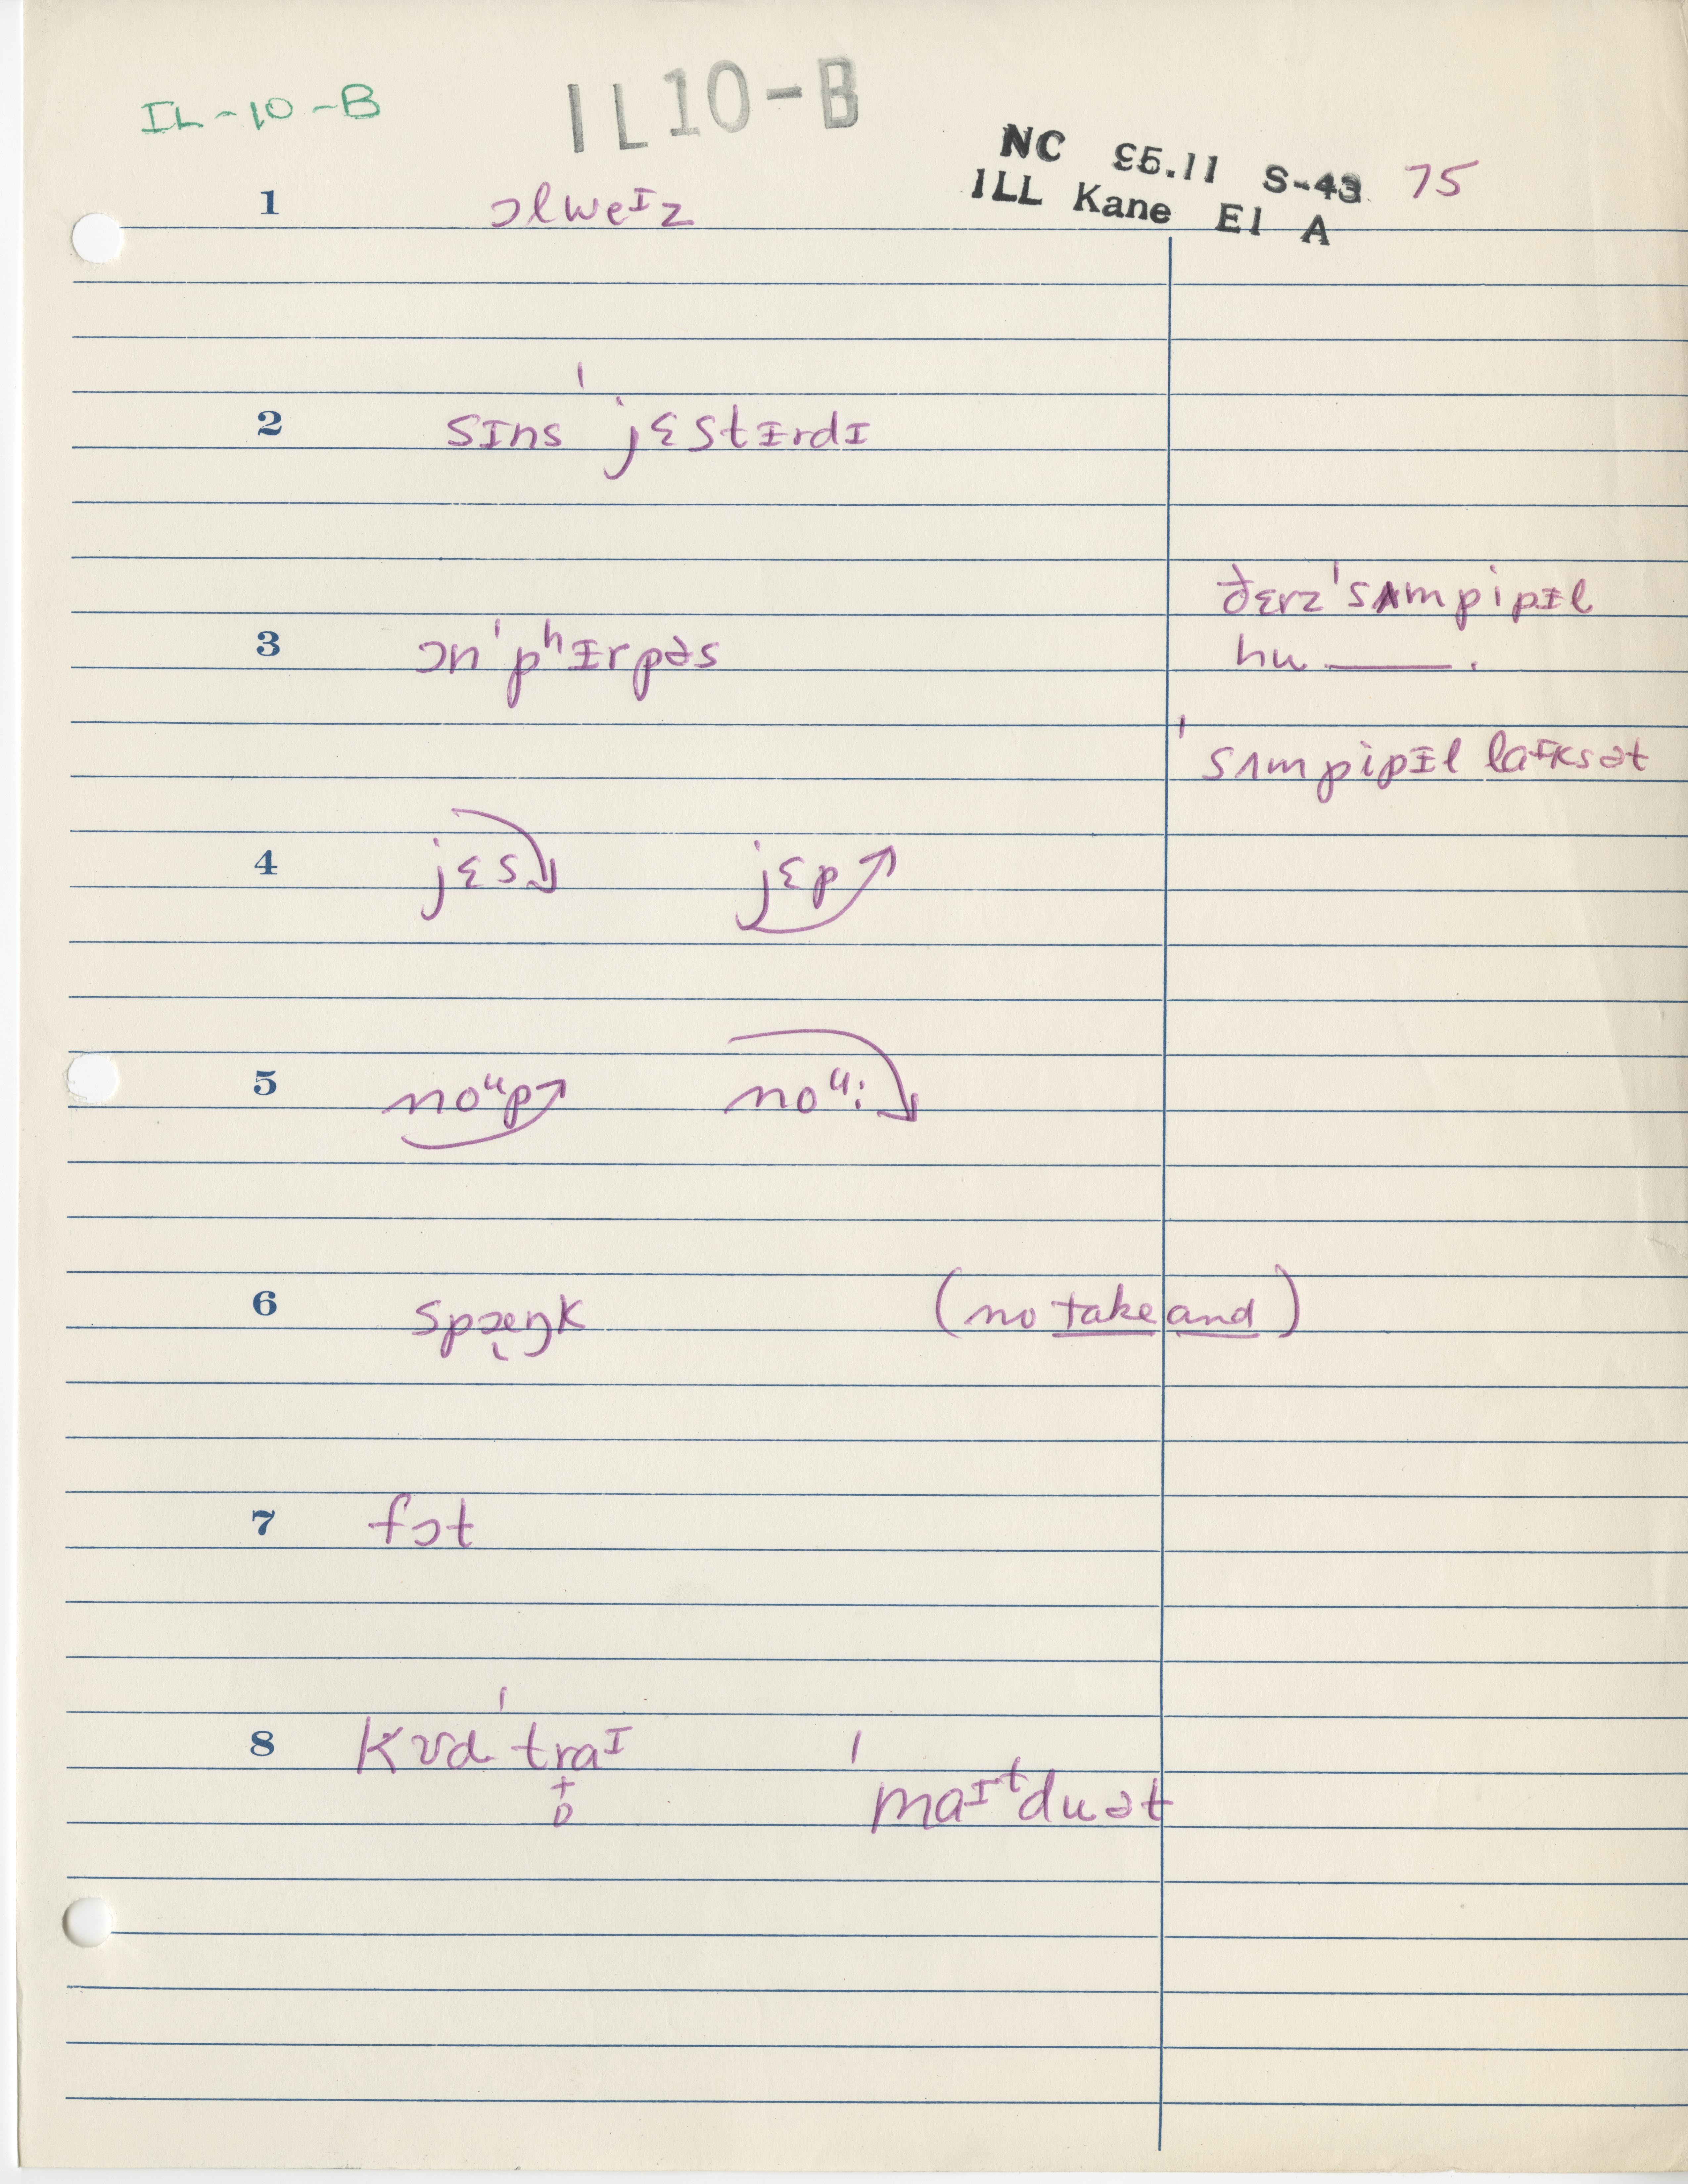 IL-10-B
IL10-B
NC £5.11 S-43 75
ILL Kane El A
1 ɔlweᴵz
2 sɪns ˈjɛstɪ̵rdɪ
ðɛrz ˈsʌmpipɪ̵l
3 ɔn ˈpʰɪ̵rpəs
hu ____.
ˈsʌmpipɪ̵l laᴵksət
4 jɛs jɛp
5 noᵘp noᵘ:
6 spæ̨ŋk (no take and)
7 fɔt
8 kʊd ˈtraᴵ
ˈmaᴵᵗduət